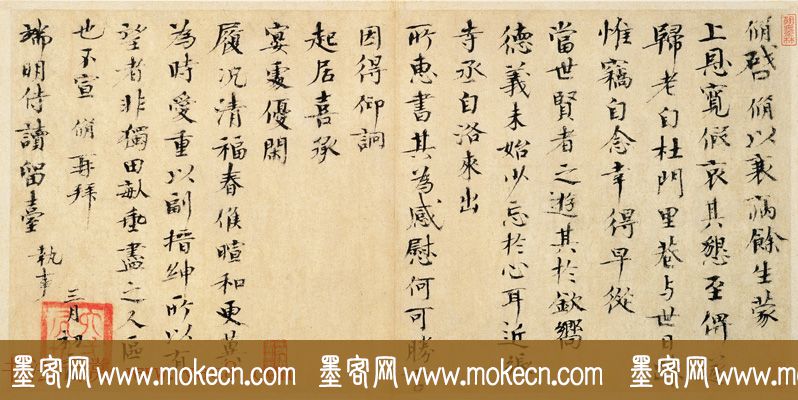 脩啓脩以衰病餘生蒙
上恩寬假哀其懇至俾
歸老自杜門里巷与世日
惟竊自念幸得早從
當世賢者之遊其於欽嚮
德義未始少忘於心耳近張
寺丞自洛來出
所惠書其為感慰何可勝
因得仰詢
起居喜承
宴處優閑
履况清福春候暄和更冀
為時愛重以副搢紳所以有
望者非獨田畝垂盡之人區
也不宣 脩再拜
端明侍讀留臺 執事
三月初
墨客网 www.mokecn.com 墨客网 www.mokecn.com